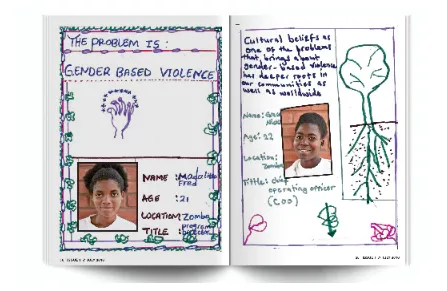 THE PROBLEM IS :
GENDER BASED VIOLENCE
NAME :
Fred
AGE : 21
LOCATION: Zomba
TITLE : program
Cultural beliefs as
one of the problems
that brings about
gender-based violence
has deeper roots in
our communities as
well as worldwide
Name:
Age: 22
Location:
Zomba
Tittle: chief
operating officer
(COO)